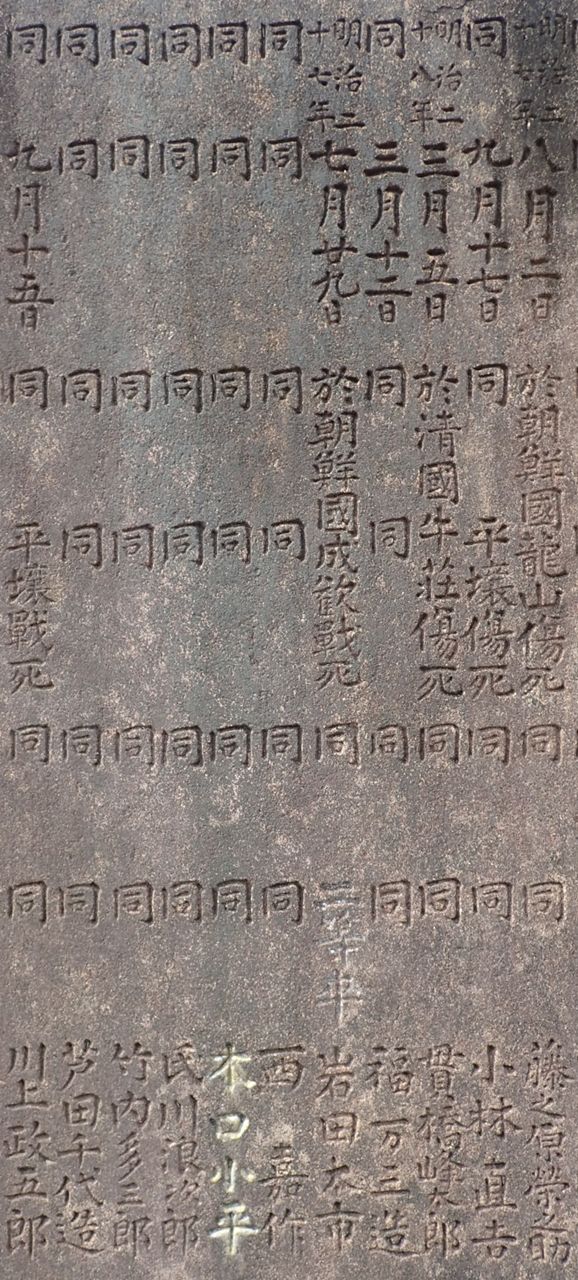 明治二十七年八月二日於朝鮮國龍山傷死同同藤之原榮之助
同九月十七日同平壌傷死同同小林直吉
明治二十八年三月五日於清國牛荘傷死同同貫橋峰太郎
同三月十二日同同同同福万三造
明治二十七年七月廿九日於朝鮮國成歓戰死同二等卒岩田太市
同同同同同同西嘉作
同同同同同同木口小平
同同同同同同氏川浪次郎
同同同同同同竹内多三郎
同同同同同同芦田千代造
同九月十五日同平壌戰死同同川上政五郎